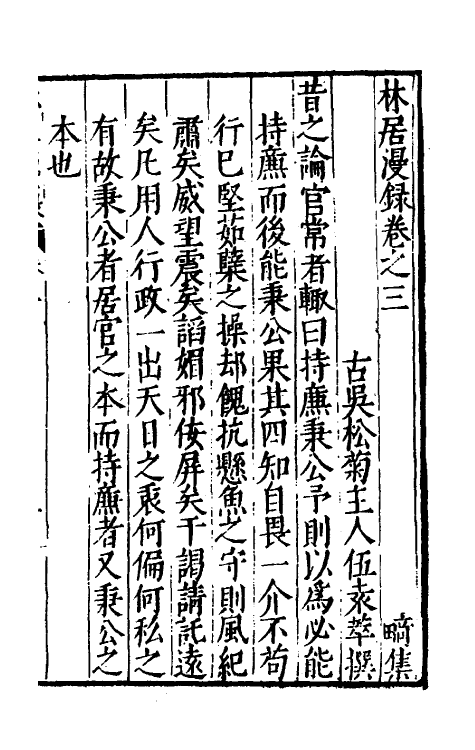 林居漫録卷之三　畸集
古吳松菊主人伍袁萃撰
昔之論官常者輙曰持㢘秉公予則以爲必能
持㢘而後能秉公果其四知自畏一介不茍
行已堅茹糵之操却餽抗懸魚之守則風紀
肅矣威望震矣謟媚邪佞屏矣干謁請託遠
矣凡用人行政一出天日之秉何偏何私之
有故秉公者居官之本而持㢘者又秉公之
本也